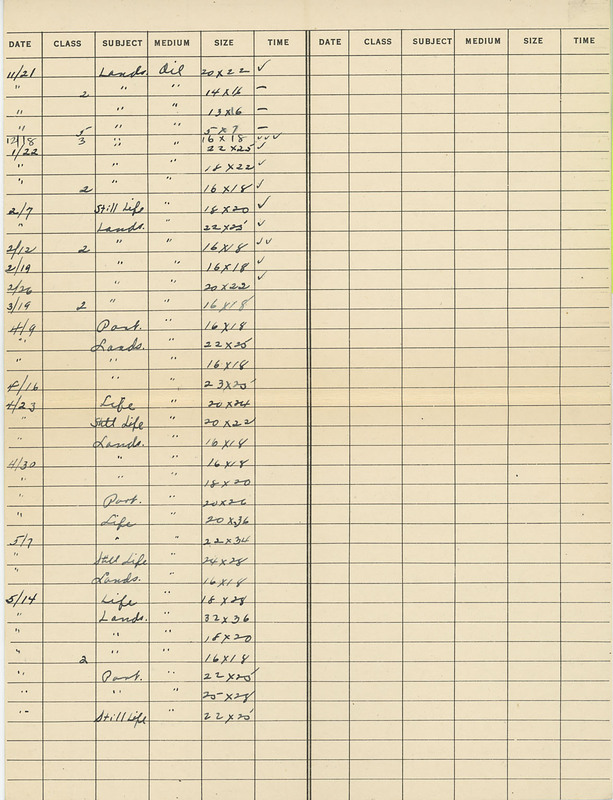 DATE CLASS SUBJECT MEDIUM SIZE TIME DATE CLASS SUBJECT MEDIUM SIZE TIME
11/21 Lands. Oil 20 x 22 ✓
" 2 " " 14 x 16 –
" " " 13 x 16 –
" 5 " " 5 x 7 –
12/18 3 " " 16 x 18 ✓✓✓
1/22 " 22 x 25 ✓
" " " 18 x 22 ✓
" 2 " " 16 x 18 ✓
2/7 Still Life " 18 x 20 ✓
" Lands. " 22 x 25 ✓
2/12 2 " " 16 x 18 ✓✓
2/19 " " 16 x 18 ✓
2/26 " " 20 x 22 ✓
3/19 2 " " 16 x 18
4/9 Port. " 16 x 18
" Lands. " 22 x 25
" " " 16 x 18
4/16 " " 23 x 25
4/23 Life " 20 x 24
" Still Life " 20 x 22
" Lands. " 16 x 18
4/30 " " 16 x 18
" " " 18 x 20
" Port. " 20 x 26
" Life " 20 x 36
5/7 " " 22 x 34
" Still Life " 24 x 28
" Lands. " 16 x 18
5/14 Life " 18 x 28
" Lands. " 32 x 36
" " " 18 x 20
" 2 " 16 x 18
" Port. " 22 x 25
" " " 25 x 28
" Still Life " 22 x 25